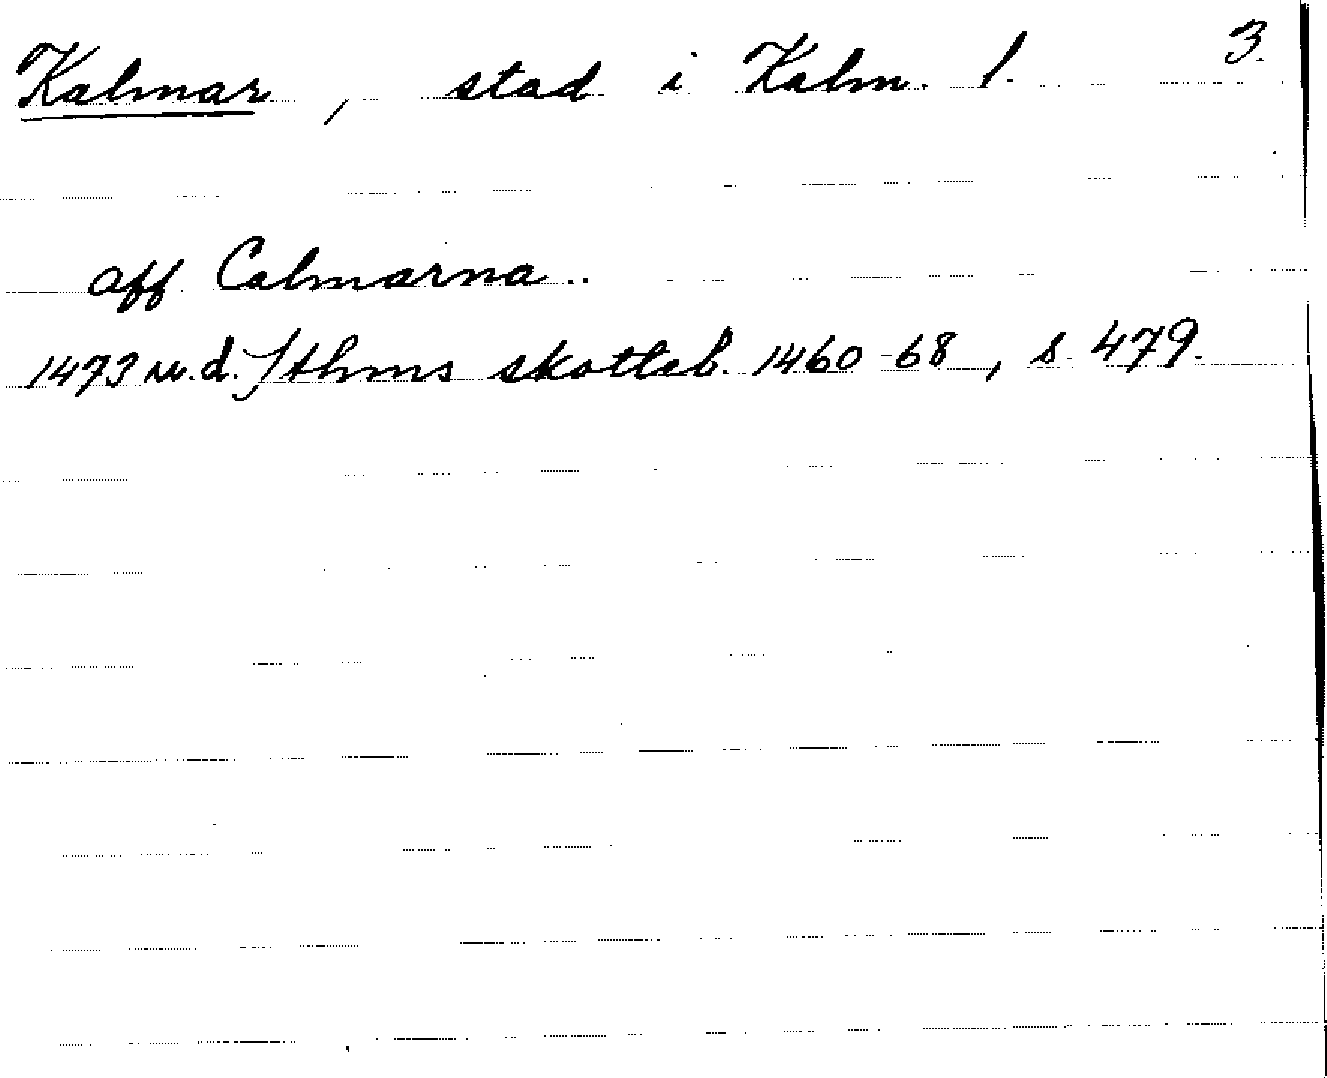 Kalmar, stad i Kalm. l. 3.
aff Calmarna..
1473 u.d. Sthms skotteb. 1460-68, s. 479.